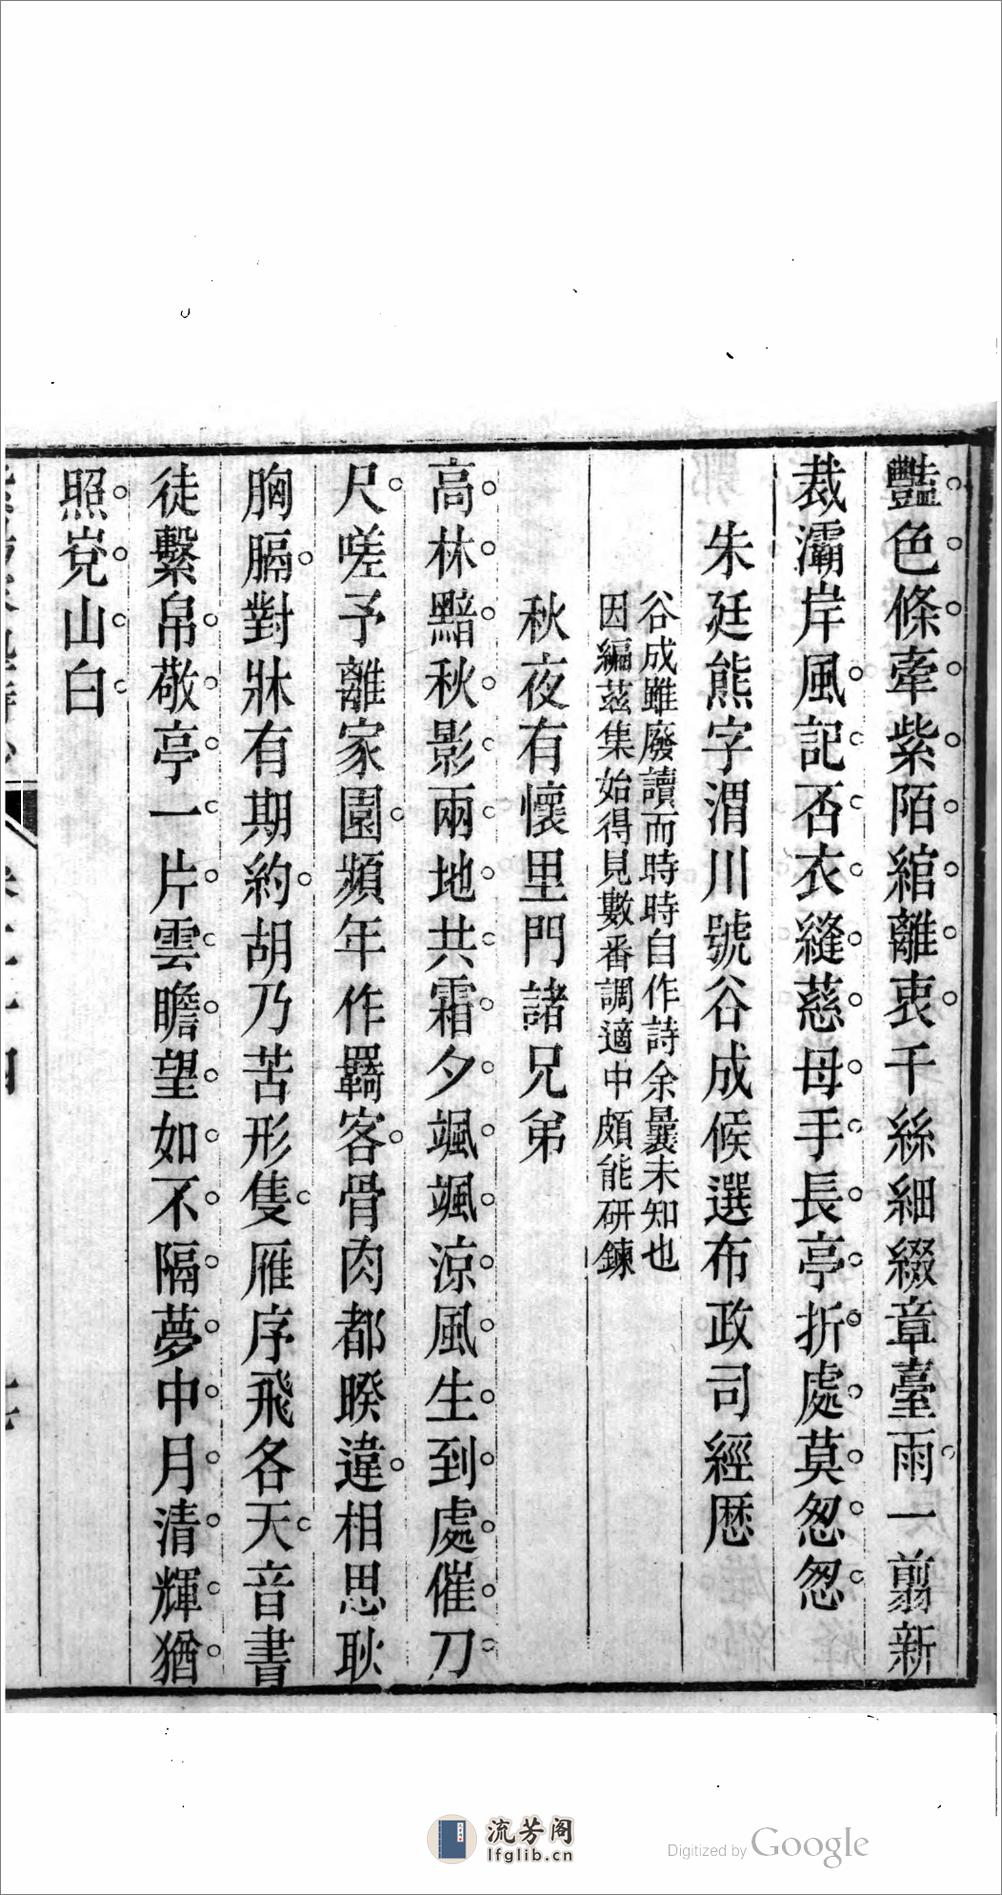 豔色條牽紫陌綰離衷千絲細綴章臺雨一翦新
裁灞岸風記否衣縫慈母手長亭折處莫怱怱
朱廷熊字渭川號谷成候選布政司經厯
谷成雖廢讀而時時自作詩余曩未知也
因編茲集始得見數番調適中頗能研鍊
秋夜有懷里門諸兄弟
高林黯秋影兩地共霜夕颯颯涼風生到處催刀
尺嗟予離家園頻年作羇客骨肉都暌違相思耿
胸膈對牀有期約胡乃苦形隻雁序飛各天音書
徒繫帛敬亭一片雲瞻望如不隔夢中月清輝猶
照兗山白
流芳阁
lfglib.cn
Digitized by Google